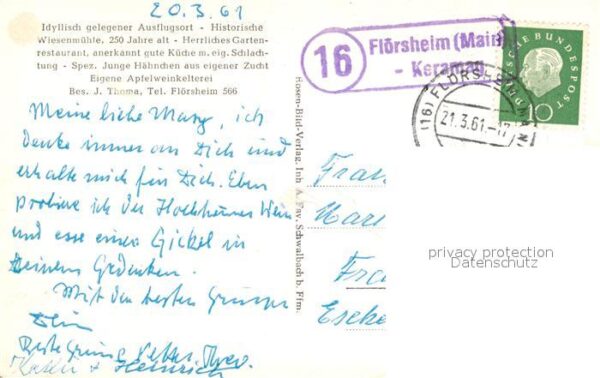 20.3.61
Idyllisch gelegener Ausflugsort - Historische
Wiesenmühle, 250 Jahre alt - Herrliches Garten-
restaurant, anerkannt gute Küche m. eig. Schlach-
tung - Spez. Junge Hähnchen aus eigener Zucht
Eigene Apfelweinkelterei
Bes. J. Thoma, Tel. Flörsheim 566
Meine liebe Mary, ich
denke immer an Dich und
erhalte mich für Dich. Eben
probiere ich den Hochheimer Wein
und esse einen Gickel in
Deinem Gedenken.
Mit den besten Grüssen
Dein
Beste Grüsse
+ Heinrich
Rosen-Bild-Verlag, Inh. A. Fay, Schwalbach b. Ffm.
16
Flörsheim (Main)
- Keramag
(16) FLÖRSHEIM
21.3.61.-17
DEUTSCHE BUNDESPOST
10
Frau
Mar
Fra
Esche
privacy protection
Datenschutz